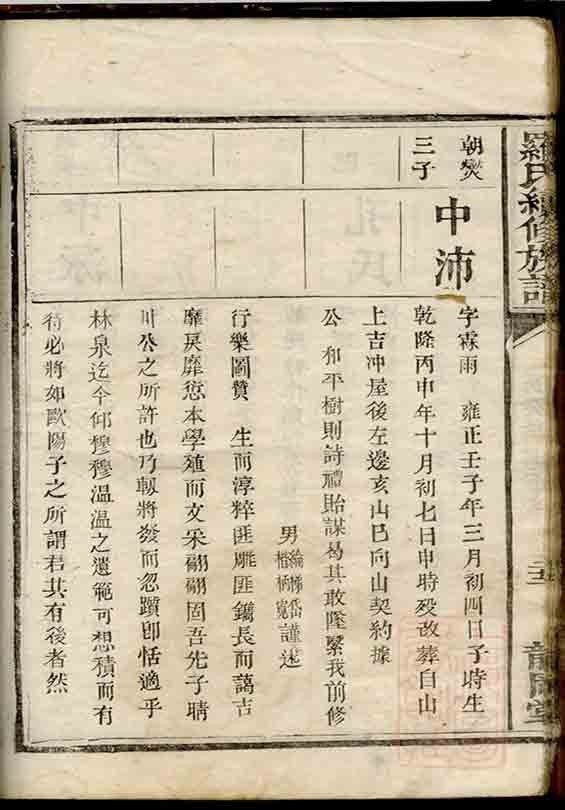 羅氏續修族譜
五
朝爕
三子
中沛
字霖雨 雍正壬子年三月初四日子時生
乾隆丙申年十月初七日申時殁改葬自山
上吉冲屋後左邊亥山巳向山契約據
公 和平樹則詩禮貽謀曷其敢墜繄我前修
男 謹述
行樂圖贊 生而淳粹匪雕匪鐫長而藹吉
靡戾靡愆本學殖而文采翩翩固吾先子晴
川公之所許也乃軔將發而忽躓卽恬適乎
林泉迄今仰穆穆温温之遺範可想積而有
待必將如歐陽子之所謂君其有後者然